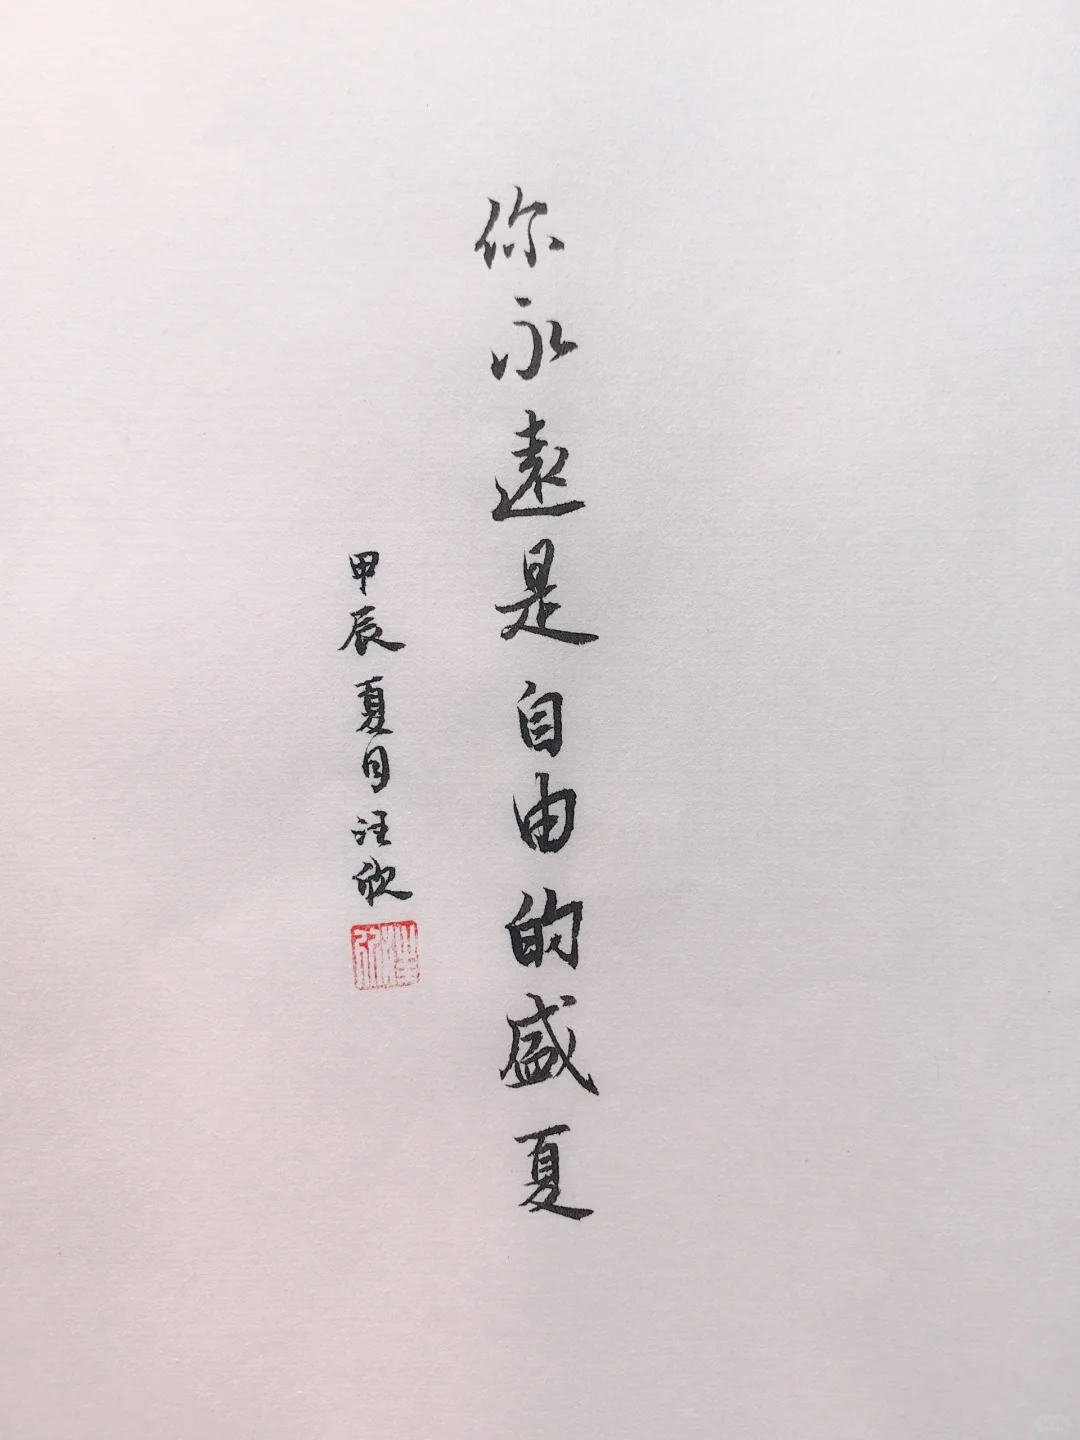 你永遠是自由的盛夏
甲辰夏月汪欣